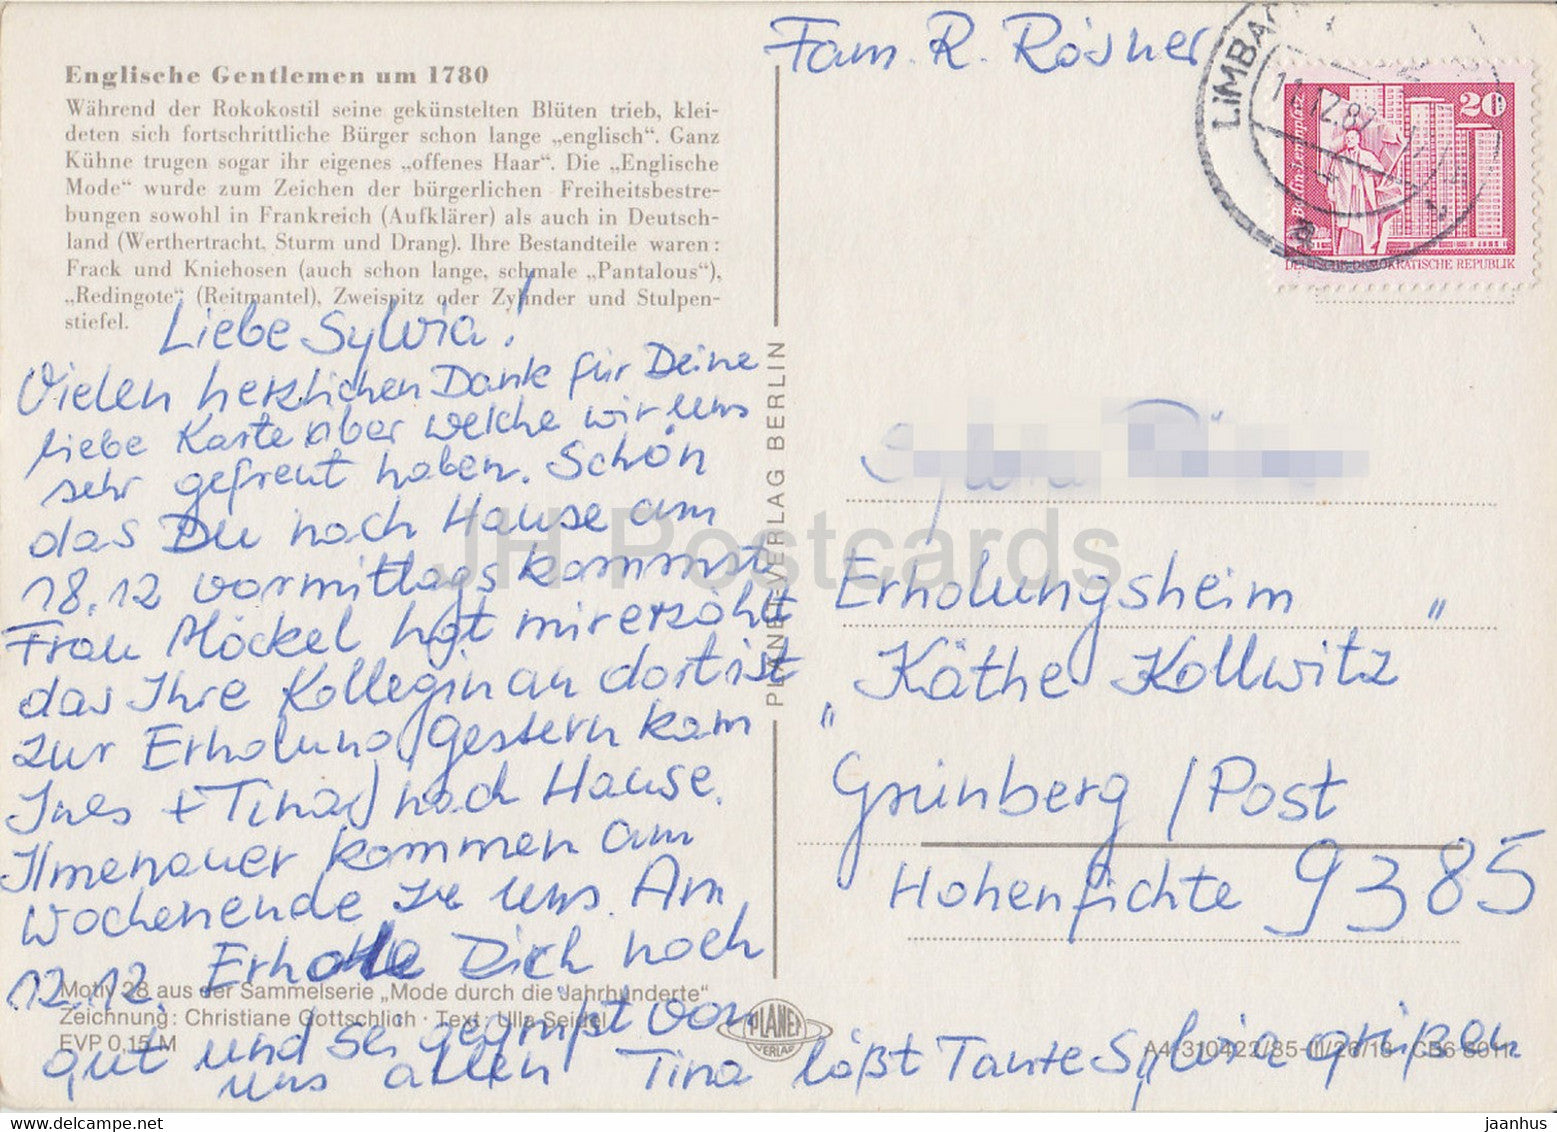 Englische Gentlemen um 1780
Während der Rokokostil seine gekünstelten Blüten trieb, klei-
deten sich fortschrittliche Bürger schon lange „englisch“. Ganz
Kühne trugen sogar ihr eigenes „offenes Haar“. Die „Englische
Mode“ wurde zum Zeichen der bürgerlichen Freiheitsbestre-
bungen sowohl in Frankreich (Aufklärer) als auch in Deutsch-
land (Werthertracht, Sturm und Drang). Ihre Bestandteile waren:
Frack und Kniehosen (auch schon lange, schmale „Pantalous“),
„Redingote“ (Reitmantel), Zweispitz oder Zylinder und Stulpen-
stiefel.
Liebe Sylvia!
Vielen herzlichen Dank für Deine
liebe Karte über welche wir uns
sehr gefreut haben. Schön
das Du nach Hause am
18.12 vormittags kommst
Frau Möckel hat mir erzählt
das Ihre Kollegin an dort ist
zur Erholung. Gestern kam
Ines + Tina nach Hause.
Ilmenauer kommen am
Wochenende zu uns. Am
12.12. Erhole Dich noch
gut und sei gegrüßt von
uns allen Tina läßt Tante Sylvia grüßen
Motiv 28 aus der Sammelserie „Mode durch die Jahrhunderte“
Zeichnung: Christiane Gottschlich · Text: Ulla Seidel
EVP 0,15 M
PLANET-VERLAG BERLIN
PLANET
VERLAG
A4 310422/85-III/26/13
Fam. R. Rösner
LIMBACH
11.12.87
20
Berlin-Leninplatz
DEUTSCHE DEMOKRATISCHE REPUBLIK
Sylvia
Erholungsheim
„Käthe Kollwitz“
Grünberg / Post
Hohenfichte 9385
JH Postcards
jaanhus